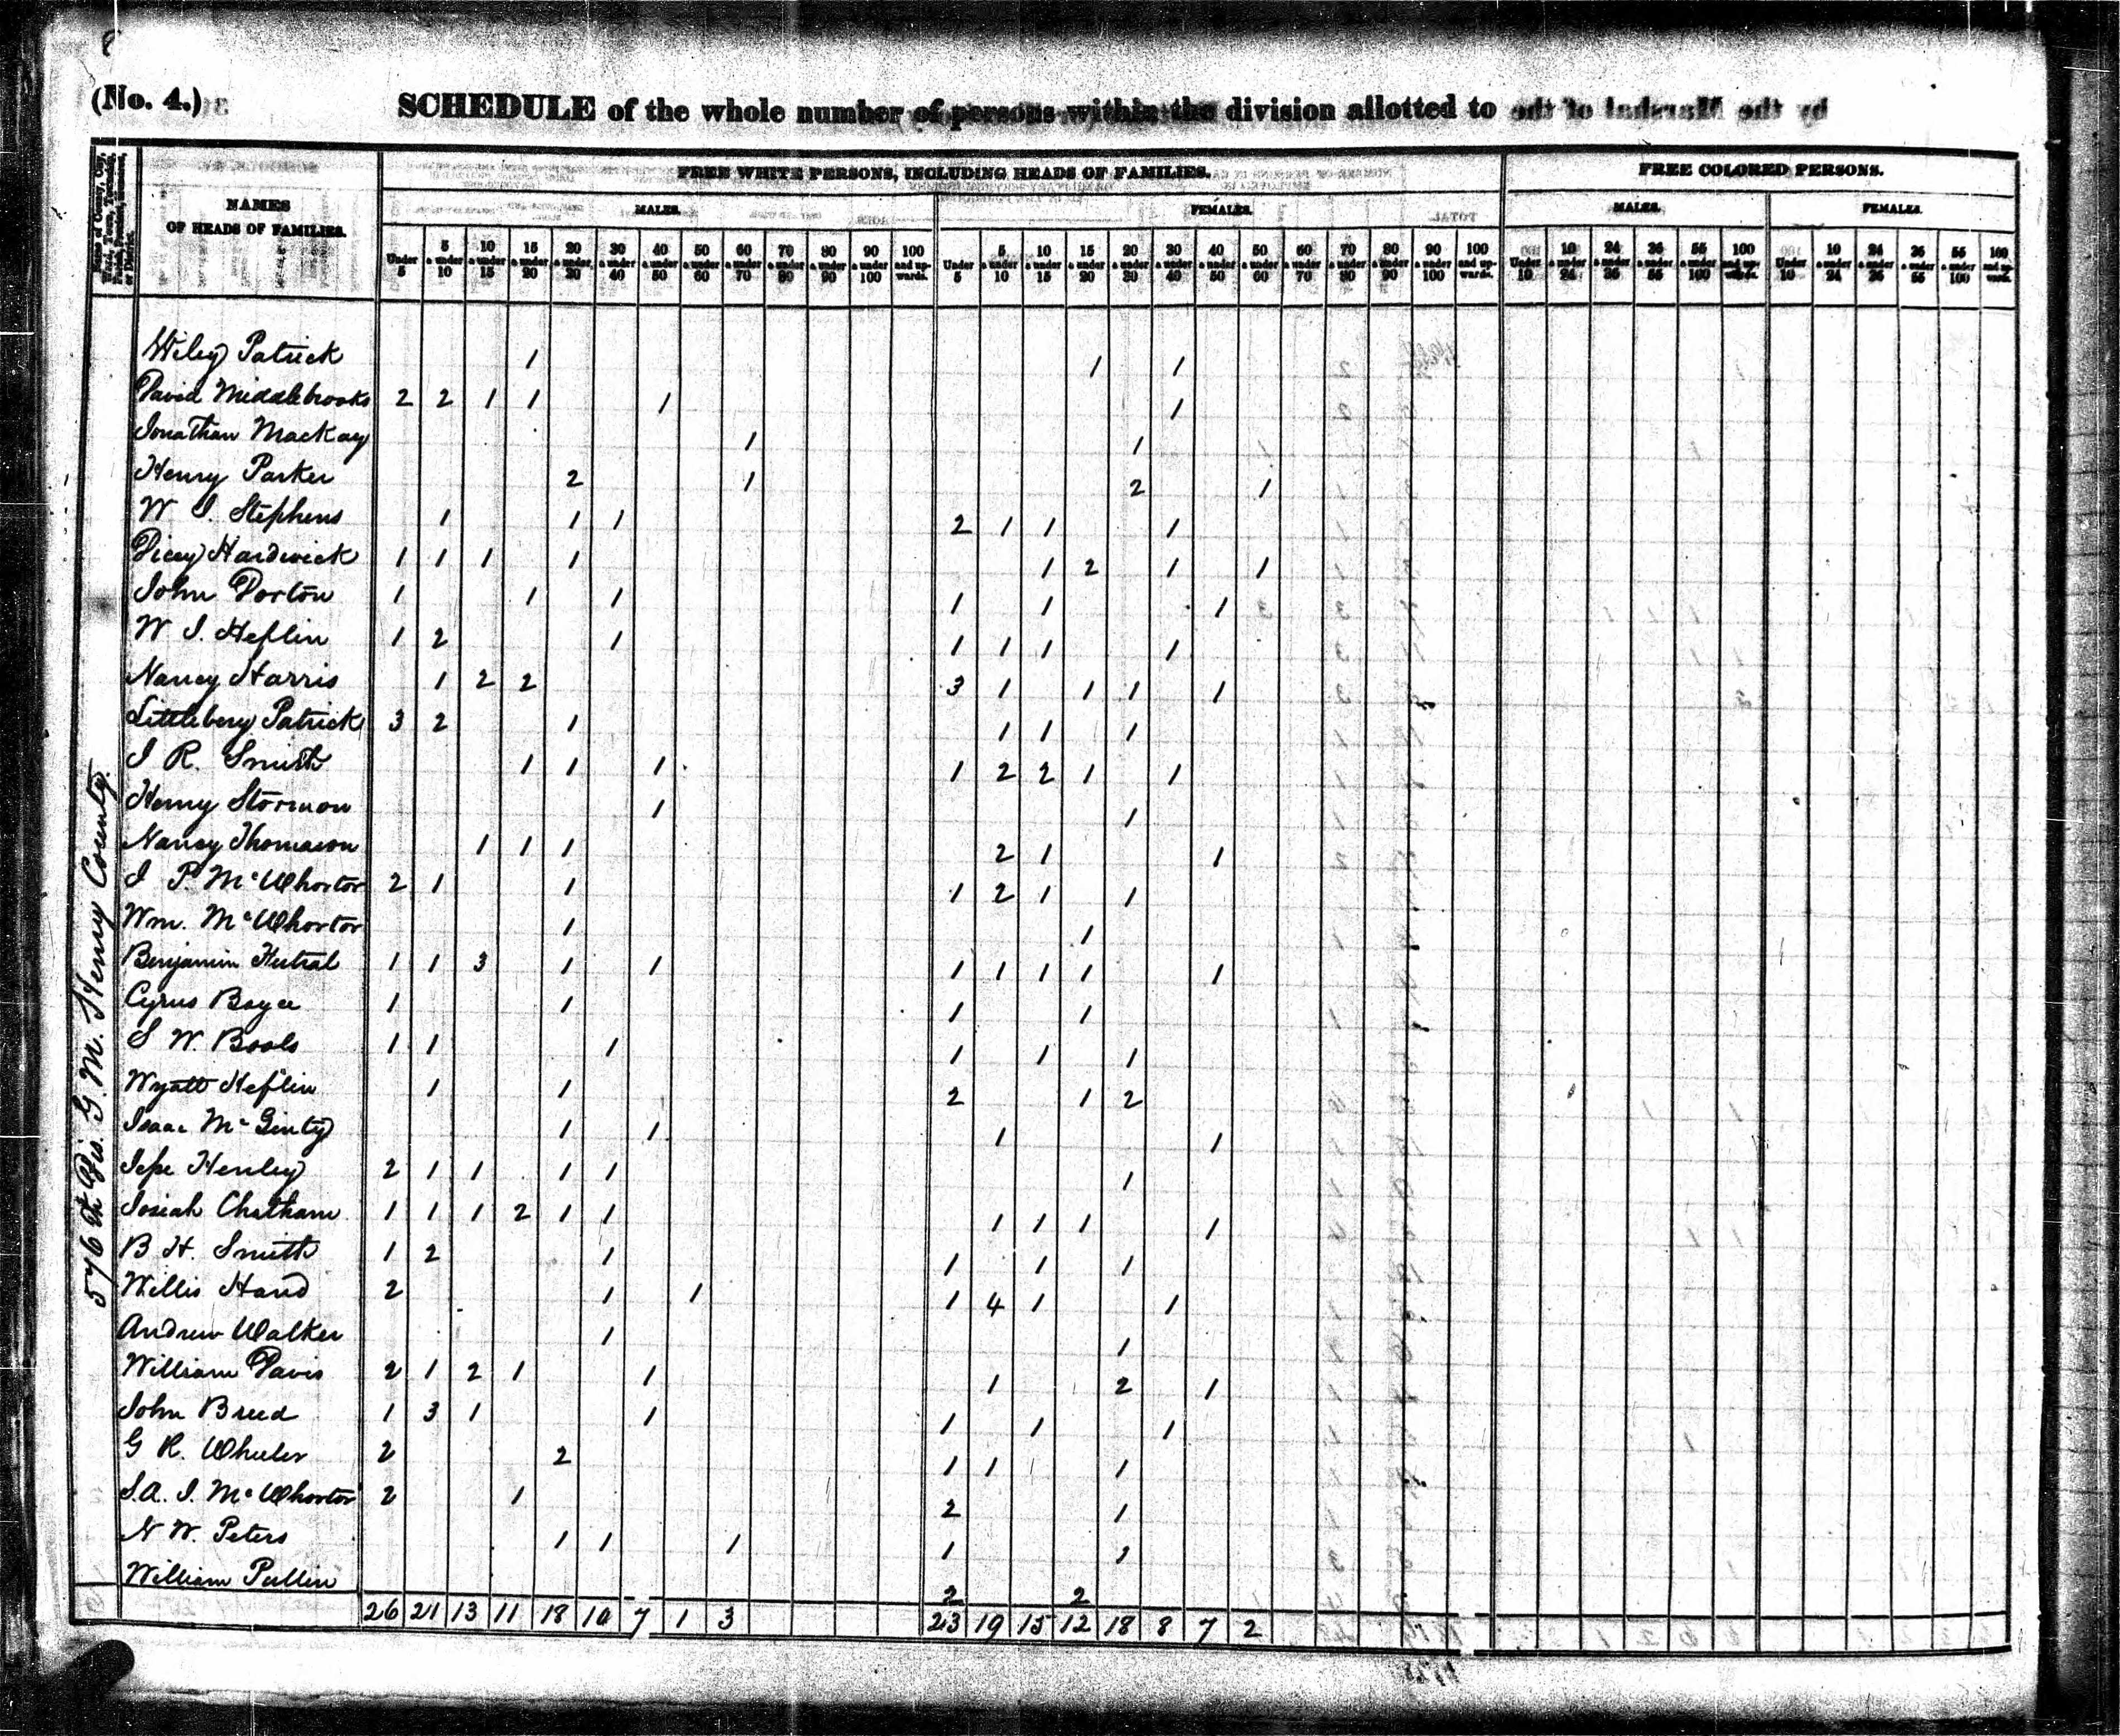 (No. 4.)
SCHEDULE of the whole number of persons within the division allotted to
Name of County, City, Ward, Town, Township, Parish, Precinct, Hundred, or District.
NAMES
OF HEADS OF FAMILIES.
FREE WHITE PERSONS, INCLUDING HEADS OF FAMILIES.
FREE COLORED PERSONS.
MALES. FEMALES. MALES. FEMALES.
Under 5 | 5 & under 10 | 10 & under 15 | 15 & under 20 | 20 & under 30 | 30 & under 40 | 40 & under 50 | 50 & under 60 | 60 & under 70 | 70 & under 80 | 80 & under 90 | 90 & under 100 | 100 and upwards. | Under 5 | 5 & under 10 | 10 & under 15 | 15 & under 20 | 20 & under 30 | 30 & under 40 | 40 & under 50 | 50 & under 60 | 60 & under 70 | 70 & under 80 | 80 & under 90 | 90 & under 100 | 100 and upwards. | Under 10 | 10 & under 24 | 24 & under 36 | 36 & under 55 | 55 & under 100 | 100 and upwards. | Under 10 | 10 & under 24 | 24 & under 36 | 36 & under 55 | 55 & under 100 | 100 and upwards.
576th Dis. G. M. Henry County.
Wiley Patrick 1 1 1
David Middlebrooks 2 2 1 1 1 1
Jonathan Mackay 1 1
Henry Parker 2 1 2 1
W J. Stephens 1 1 1 2 1 1 1
Dicey Hardwick 1 1 1 1 1 2 1 1
John Dorton 1 1 1 1 1 1
W J. Heflin 1 2 1 1 1 1 1
Nancy Harris 1 2 2 3 1 1 1 1
Littlebery Patrick 3 2 1 1 1 1
J R. Smith 1 1 1 1 2 2 1 1
Henry Stormon 1 1
Nancy Thomason 1 1 1 2 1 1
J P. McWhortor 2 1 1 1 2 1 1
Wm. McWhortor 1 1
Benjamin 1 1 3 1 1 1 1 1 1 1
Cyrus Boyce 1 1 1 1
S W. Bools 1 1 1 1 1 1
Wyatt Heflin 1 1 2 1 2
Isaac McGinty 1 1 1 1
Jesse Henley 2 1 1 1 1 1
Josiah Chatham 1 1 1 2 1 1 1 1 1 1
B H. Smith 1 2 1 1 1 1
Willis Hand 2 1 1 1 4 1 1
Andrew Walker 1 1
William Davis 2 1 2 1 1 1 2 1
John Breed 1 3 1 1 1 1 1
G R. Wheeler 2 2 1 1 1
S. A. J. McWhortor 2 1 2 1
N W. Peters 1 1 1 1 1
William Pullin 2 2
26 21 13 11 18 10 7 1 3 23 19 15 12 18 8 7 2